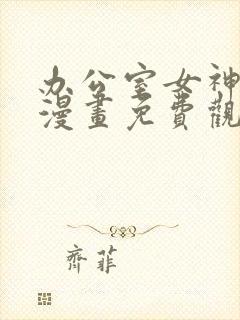 办公室女神
漫畫免費觀
齊菲